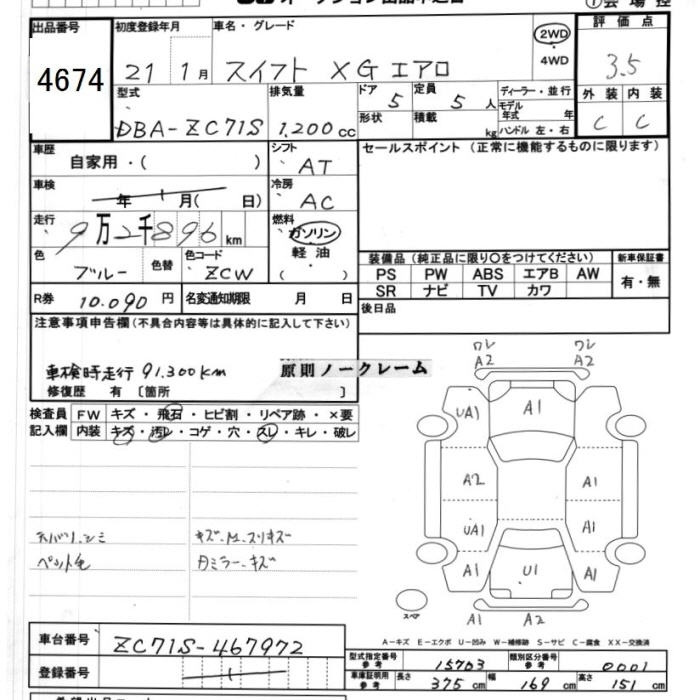 出品番号 初度登録年月 車名・グレード 2WD 評価点
4674 21 1月 スイフト XG エアロ 4WD 3.5
型式 排気量 ドア 5 定員 5人 ディーラー・並行 外装 内装
DBA-ZC71S 1,200cc 形状 積載 kg モデル年式 年 ハンドル 左・右 C C
車歴 自家用・( ) シフト AT セールスポイント (正常に機能するものに限ります)
車検 年 月( 日) 冷房 AC
走行 9万2千896km 燃料 ガソリン 軽油 ( )
色 ブルー 色替 色コード ZCW 装備品 (純正品に限り○をつけてください) 新車保証書
PS PW ABS エアB AW 有・無
SR ナビ TV カワ
R券 10,090円 名変通知期限 月 日 後日品
注意事項申告欄(不具合内容等は具体的に記入して下さい)
車検時走行 91,300km 原則ノークレーム
修復歴 有 [箇所 ]
検査員 FW キズ・飛石・ヒビ割・リペア跡・×要
記入欄 内装 キズ・汚レ・コゲ・穴・スレ・キレ・破レ
ワレ ワレ
A2 A2
UA1 A1
A2 A1
UA1 A1
A1 U1 A1
スペア A1 A2
A-キズ E-エクボ U-凹み W-補修跡 S-サビ C-腐食 XX-交換済
車台番号 ZC71S-467972
型式指定番号 参考 15703 類別区分番号 参考 0001
登録番号
車庫証明用 参考 長さ 375cm 幅 169cm 高さ 151cm